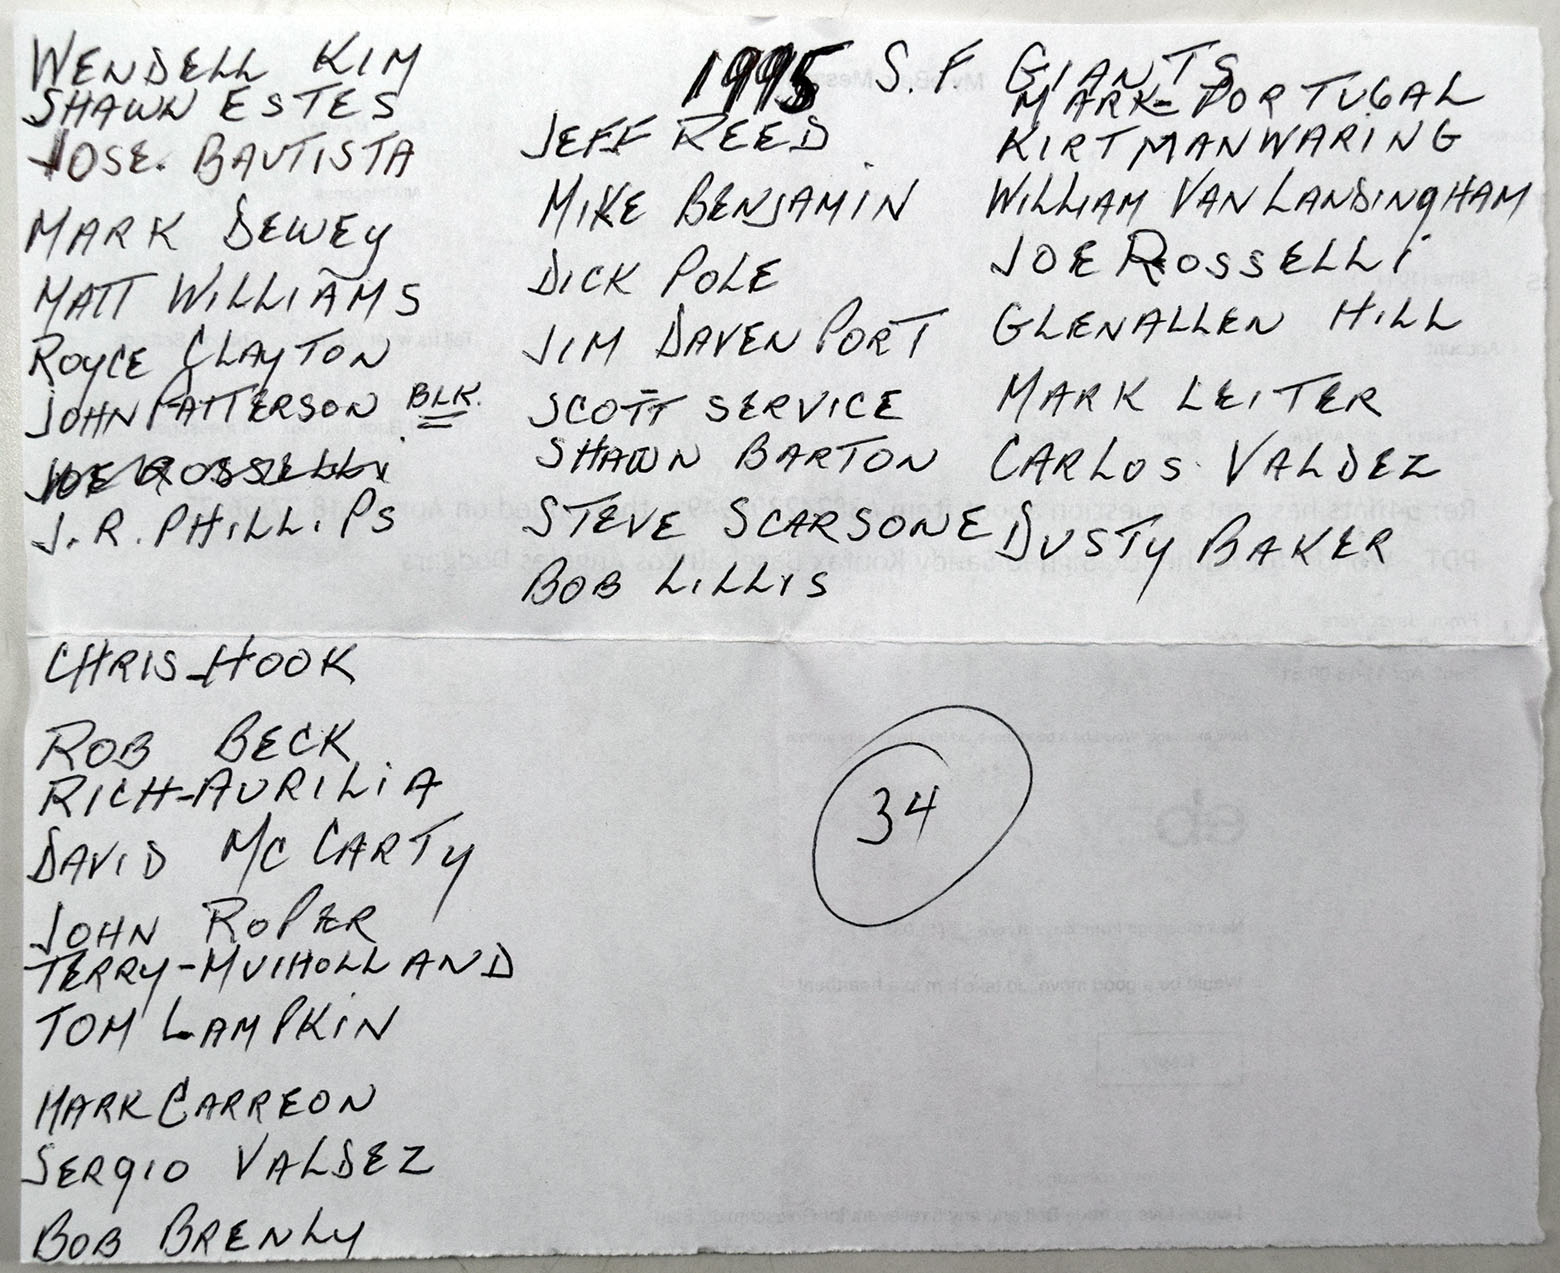 1995 S.F GIANTS
WENDELL KIM
SHAWN ESTES
JOSE. BAUTISTA
MARK DEWEY
MATT WILLIAMS
ROYCE CLAYTON
JOHN PATTERSON BLK.
JOE ROSSELLI
J.R. PHILLIPS
JEFF REED
MIKE BENJAMIN
DICK POLE
JIM DAVENPORT
SCOTT SERVICE
SHAWN BARTON
STEVE SCARSONE
BOB LILLIS
MARK-PORTUGAL
KIRT MANWARING
WILLIAM VANLANDINGHAM
JOE ROSSELLI
GLENALLEN HILL
MARK LEITER
CARLOS VALDEZ
DUSTY BAKER
CHRIS-HOOK
ROB BECK
RICH-AURILIA
DAVID MCCARTY
JOHN ROPER
TERRY-MULHOLLAND
TOM LAMPKIN
MARK CARREON
SERGIO VALDEZ
BOB BRENLY
34